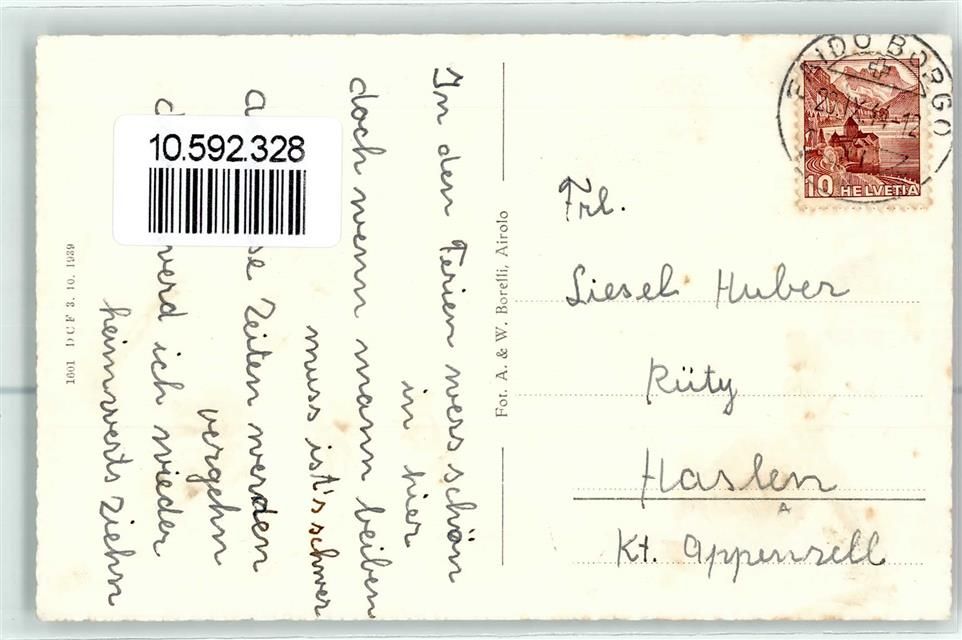 In den Ferien wers schön
in hier
doch wenn mann beiben
muss ist's schwer
se Zeiten werden
vergehn
werd ich wieder
heimwerts ziehn
10.592.328
1601 DCF 3. 10. 1939
Fot. A. & W. Borelli, Airolo
FAIDO BORGO
10 HELVETIA
Frl.
Liesel Huber
Rüty
Haslen
A
Kt. Appenzell